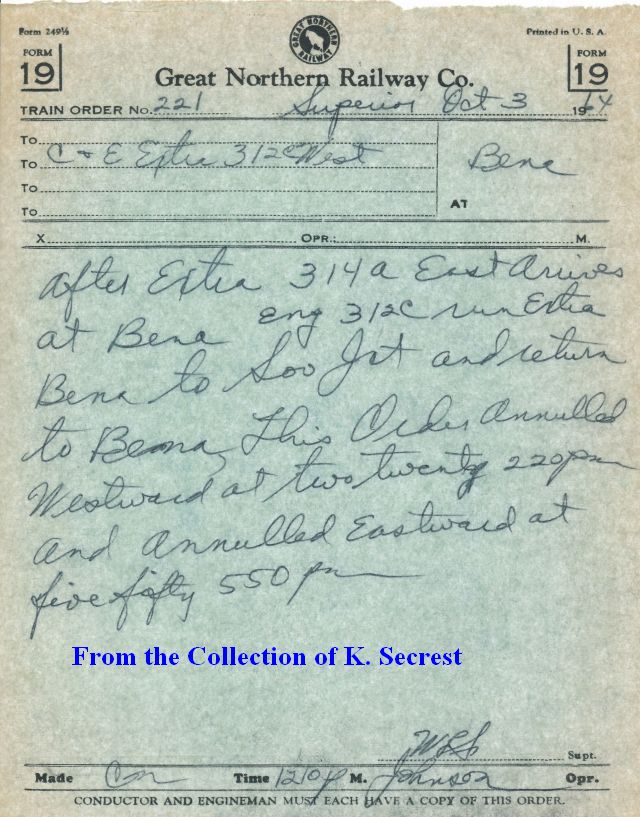 Form 249½
Printed in U. S. A.
GREAT NORTHERN RAILWAY
FORM 19
FORM 19
Great Northern Railway Co.
TRAIN ORDER No. 221 Superior Oct 3 1964
To
To C & E Extra 312C West
To
To
Bena
AT
X OPR.: M.
After Extra 314A East Arrives
at Bena Eng 312C run Extra
Bena to Soo Jct and return
to Bena This Order Annulled
Westward at two twenty 220 pm
and Annulled Eastward at
five fifty 550 pm
From the Collection of K. Secrest
Supt.
Made Com Time 1210 P M. Johnson Opr.
CONDUCTOR AND ENGINEMAN MUST EACH HAVE A COPY OF THIS ORDER.